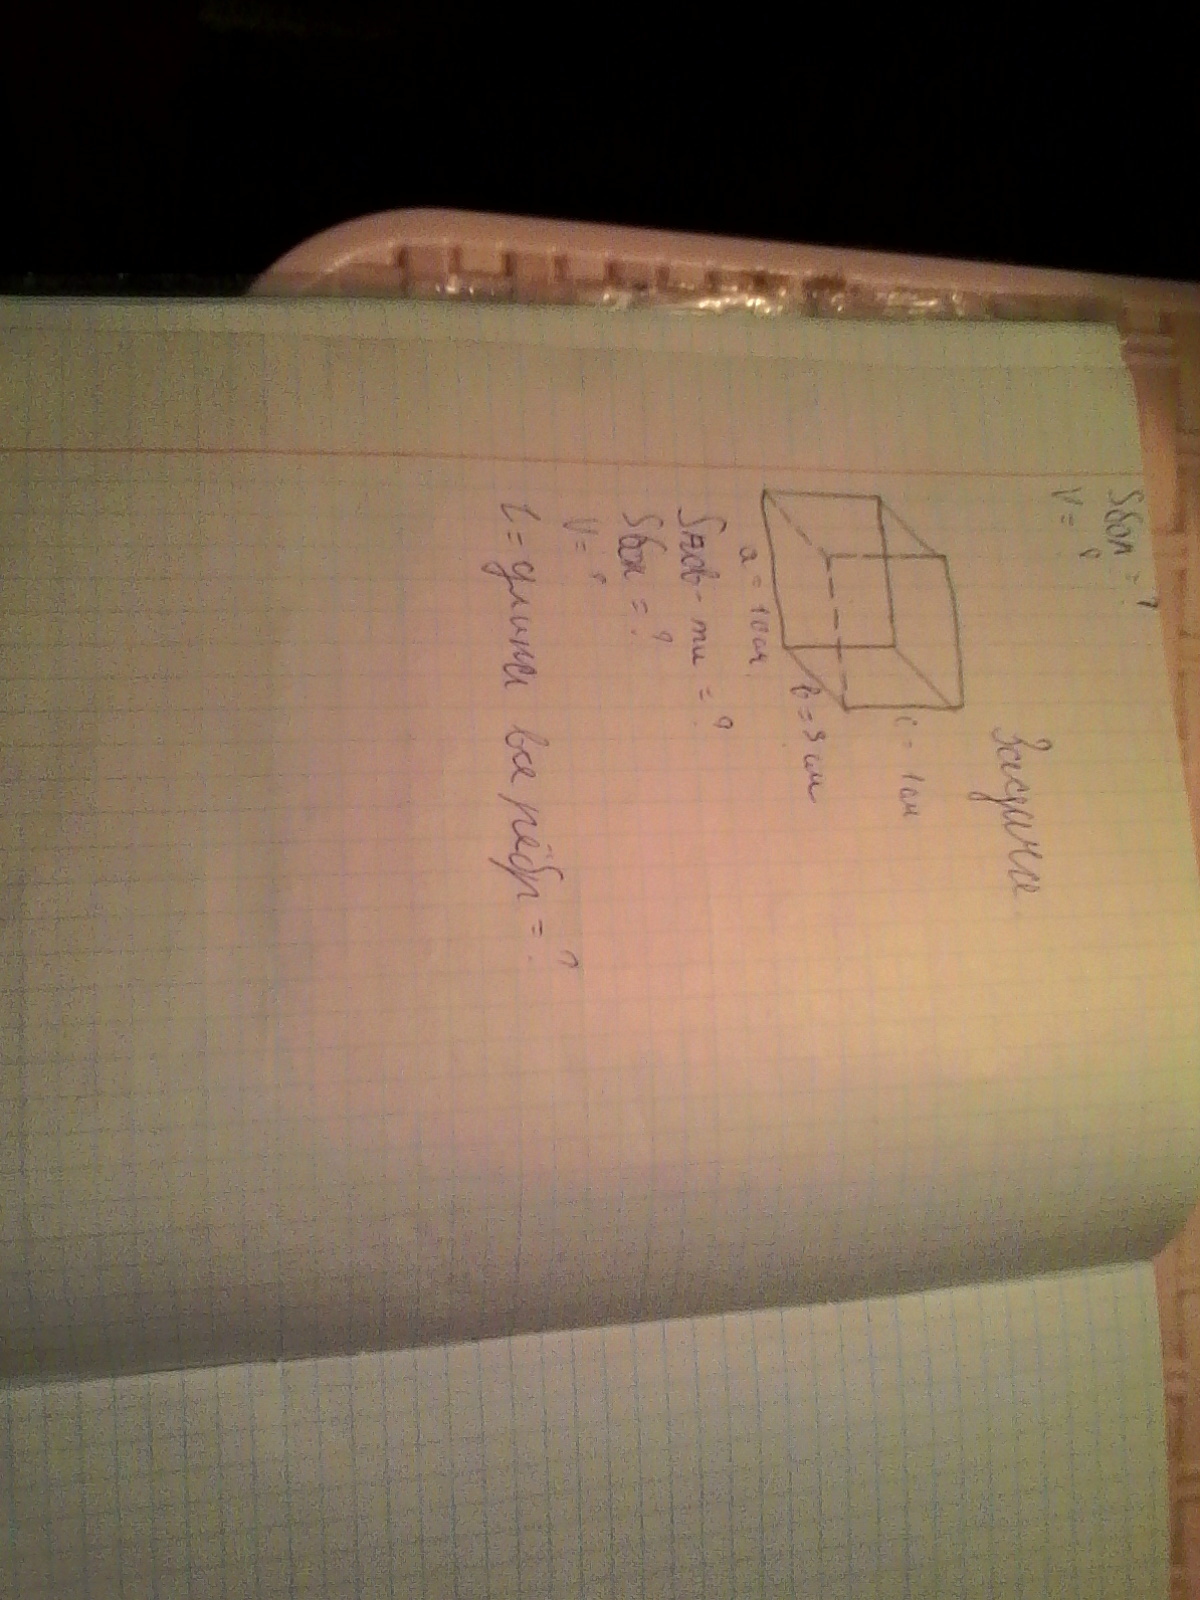 Sбол = ?
V = ?
Задание.
c = 1см
b = 9 см
a = 10см.
Sпов-ти = ?
Sбок = ?
V = ?
l = длина все рёбр = ?